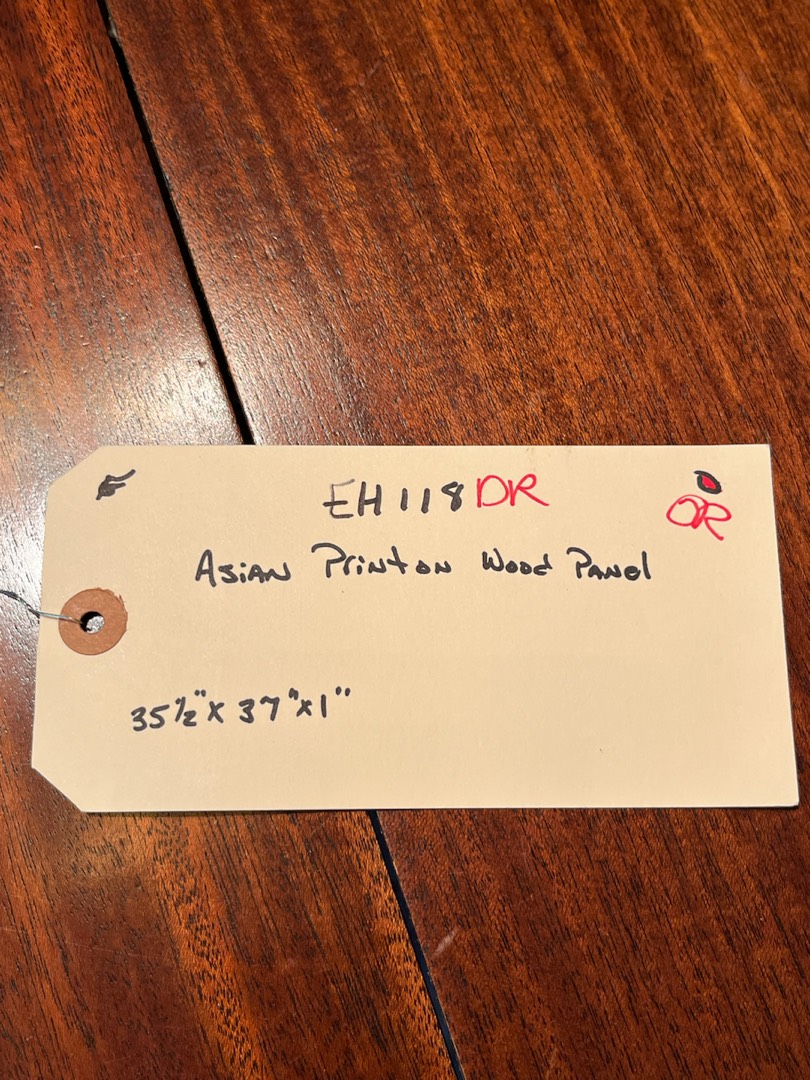 EH118DR
DR
Asian Print on Wood Panel
35½" x 37" x 1"